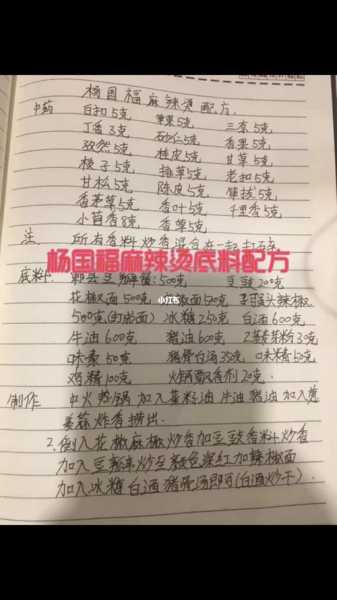 杨国福麻辣烫配方
中药 白扣5克 草果5克 三奈5克
丁香3克 砂仁5克 香果5克
孜然5克 桂皮5克 甘草5克
栀子5克 排草5克 老扣5克
甘松5克 陈皮5克 荜拔5克
香茅草5克 香叶5克 千里香5克
小茴香8克 香草5克
注 所有香料炒香混合在一起打碎
杨国福麻辣烫底料配方
小红书
底料 郫县豆瓣酱:500克 豆豉200克
花椒面500克 麻椒面500克 子弹头辣椒
500克(打成面) 冰糖250克 白酒600克
牛油600克 猪油600克 乙基麦芽粉30克
味素50克 猪骨白汤35克 味素50克
鸡精100克 火锅飘香剂20克
制作 中火热锅加入菜籽油牛油猪油加入葱
姜蒜炸香捞出.
2.倒入花椒麻椒炒香加豆豉香料炒香
加入豆瓣酱炒至颜色深红加辣椒面
加入冰糖白酒猪骨汤即可(白酒炒干)